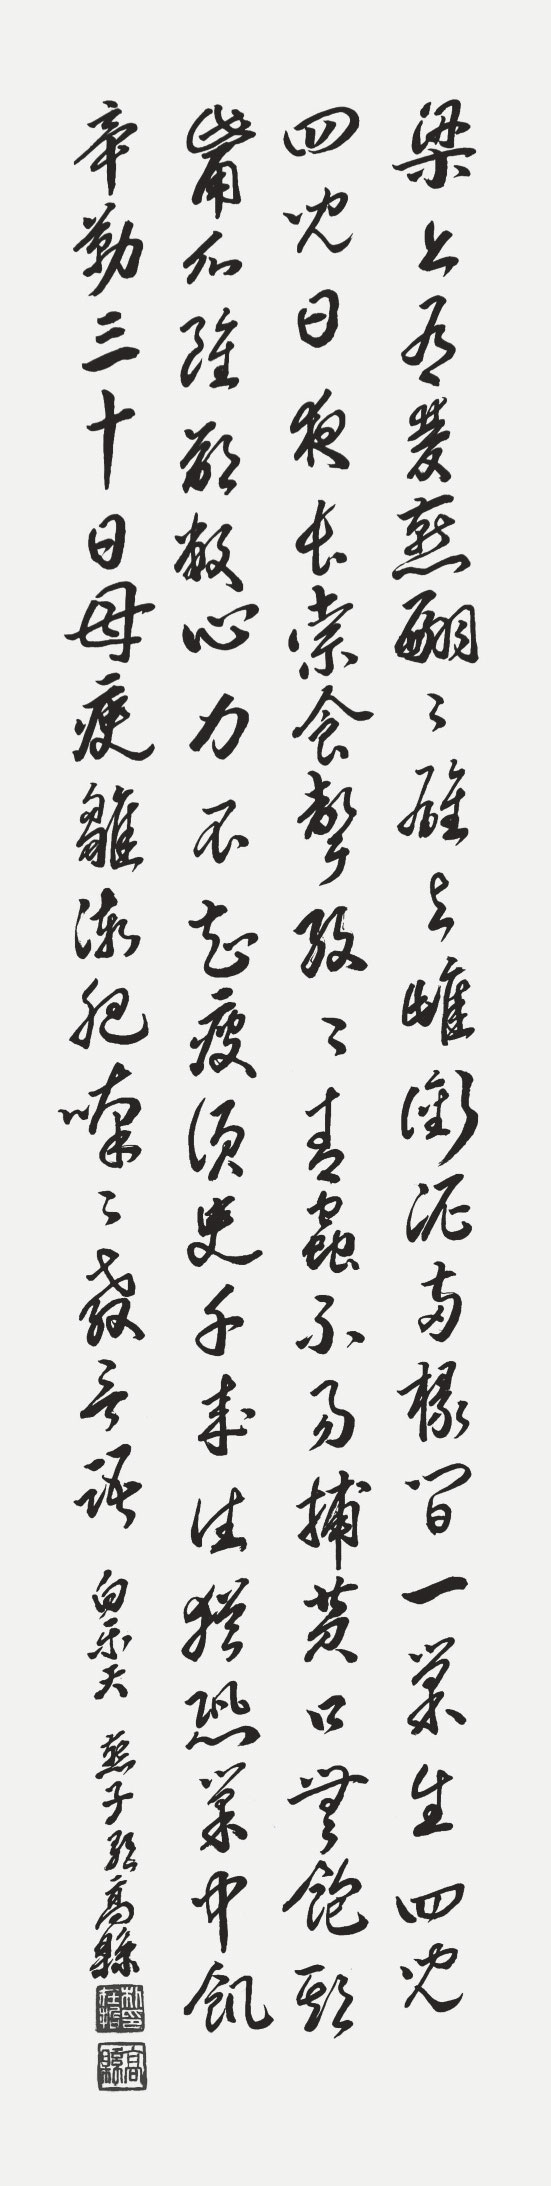 梁上有雙燕翩〻雄與雌銜泥兩椽間一巢生四兒
四兒日夜長索食聲孜〻青蟲不易捕黃口無飽期
觜爪雖欲敝心力不知疲須臾千來往猶恐巢中飢
辛勤三十日母瘦雛漸肥喃〻教言語 白樂天 燕子 高縣